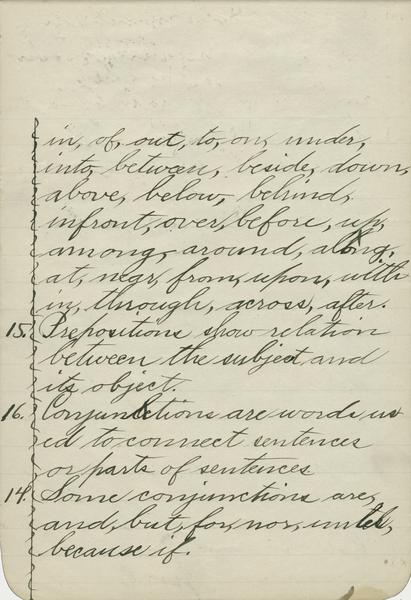 in, of, out, to, on, under,
into, between, beside, down,
above, below, behind,
infront, over, before, up,
among, around, along,
at, near, from, upon, with
in, through, across, after.
15. Prepositions show relation
between the subject and
its object.
16. Conjunctions are words us
ed to connect sentences
or parts of sentences
14. Some conjunctions are,
and, but, for, nor, until,
because if.